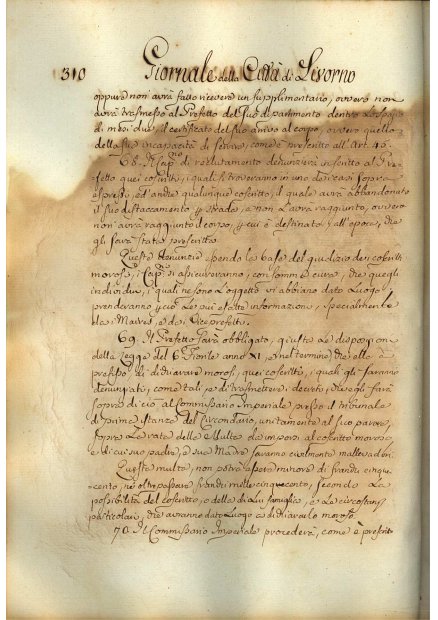 310 Giornale della Città di Livorno
oppure non avrà fatto ricevere un supplimentario, ovvero non
avrà trasmesso al Prefetto del suo dipartimento dentro lo spazio
di mesi due, il certificato del suo arrivo al corpo, ovvero quello
della sua incapacità di servire, come è prescritto all'Art. 46.
68. Il Cap.no di reclutamento denunzierà in scritto al Pre-
fetto quei coscritti, i quali si troveranno in uno de casi sopra
espressi, ed anche qualunque coscritto, il quale avrà abbandonato
il suo destaccamento strada, e non l'avrà raggiunto, ovvero
non avrà raggiunto il corpo, cui è destinato all'epoca, che
gli sarà stata prescritta.
Questa denunzia essendo la base del giudizio dei coscritti
morosi, i Cap.ni si assicureranno, con somma cura, che quegli
individui, i quali ne sono l'oggetto vi abbiano dato luogo,
prenderanno ciò le più esatte informazioni, specialmente
da Maires, e da Viceprefetti.
69. Il Prefetto sarà obbligato, giusta la disposizione
della Legge del 6 Fiorile anno XI, e nel termine che ella
prefisso, di dichiarare morosi, quei coscritti, i quali gli saranno
denunziati come tali, e di trasmettere il decreto, che egli farà
sopra di ciò al Commissario Imperiale presso il tribunale
di prima istanza del Circondario, unitamente al suo parere,
sopra la rata della Multa da imporsi al coscritto moroso
e di cui suo padre, e sua Madre saranno civilmente mallevadori.
Questa multa, non potrà essere minore di franchi cinque-
cento, nè oltrepassare franchi millecinquecento, secondo la
possibilità del coscritto, e della di lui famiglia, e le circostanze
particolari, che avranno dato luogo a dichiararlo moroso.
70. Il Commissario Imperiale procederà, come è prescritto